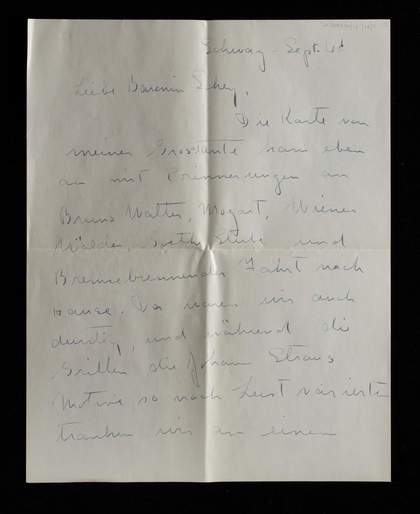 Schwaz - Sept.
Liebe Baronin Schey,
Die Karte von
meiner Grosstante kam eben
an mit Erinnerungen an
Bruno Walter, Mozart, Wiener
Wälder, Stube und
Bremsebrennender Fahrt nach
hause. Da waren wir auch
durstig, und während die
Grillen die Johann Straus
Motive so nach Lust varierten
tranken wir in einem